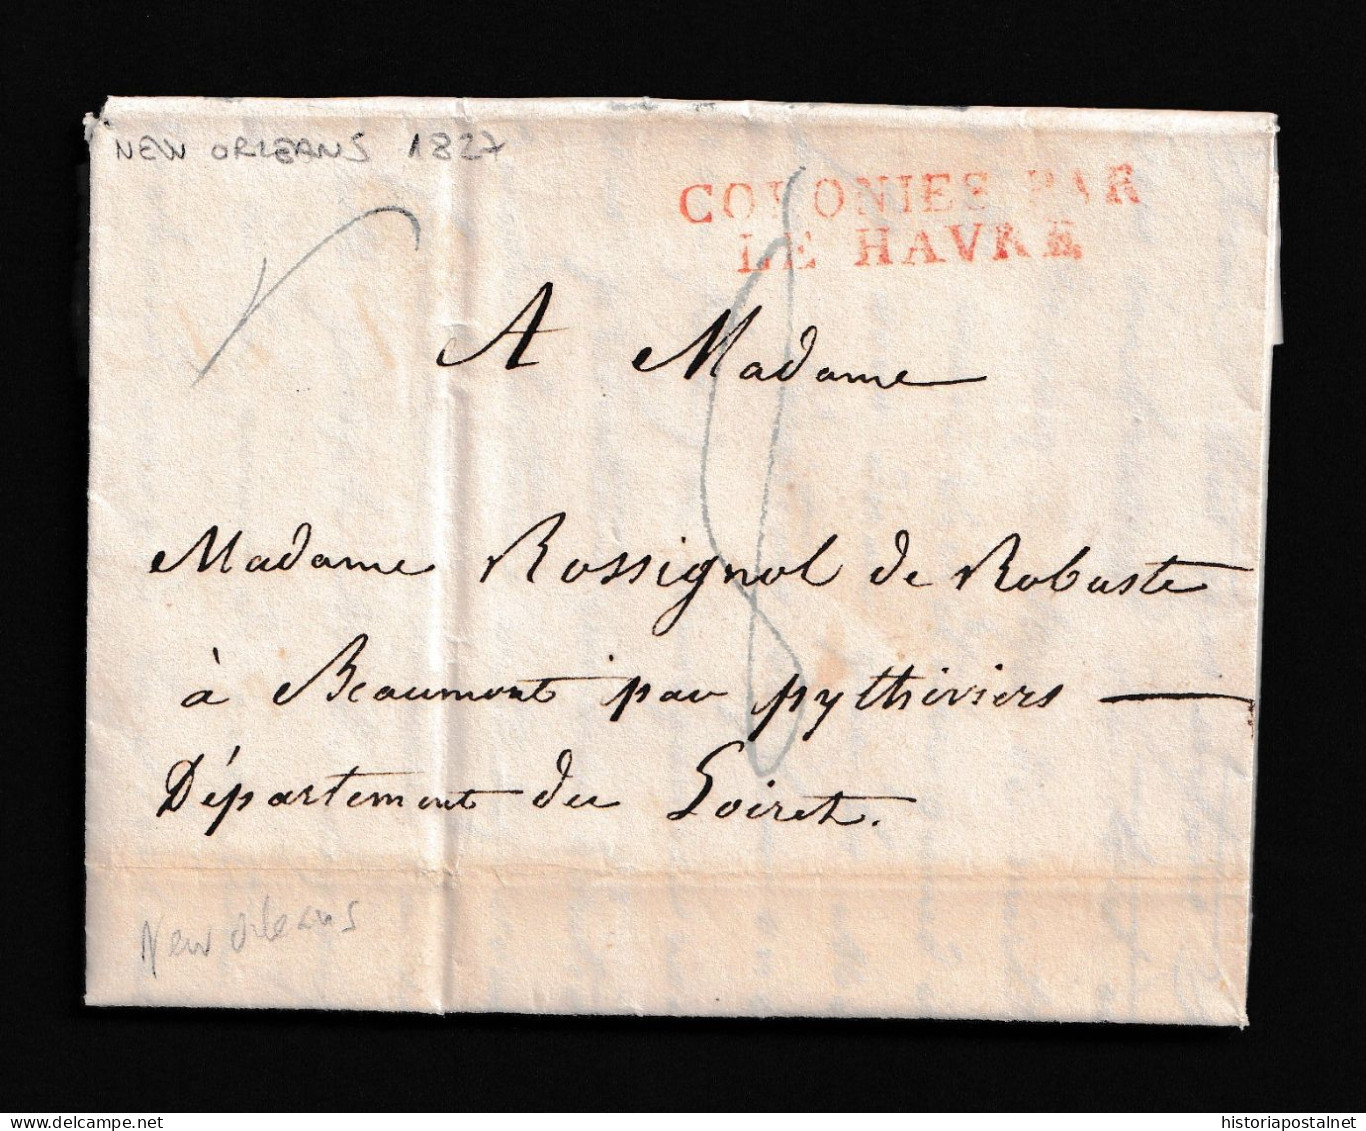 NEW ORLEANS 1827
COLONIES PAR
LE HAVRE
A Madame
Madame Rossignol de Robuste
à Beaumont par pythiviers —
Département du Loiret.
New orleans
historiapostalnet
www.delcampe.net